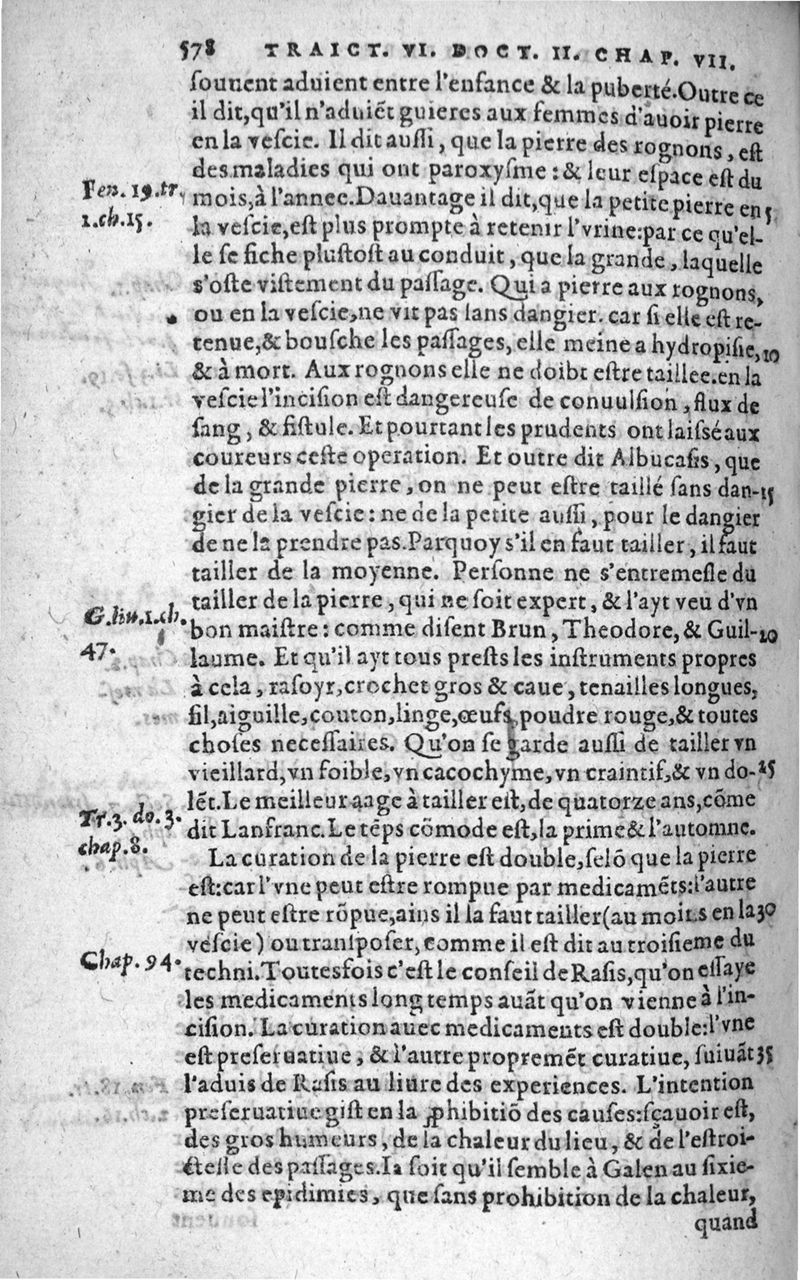 578 TRAICT. VI. DOCT. II. CHAP. VII.
souuent aduient entre l'enfance & la puberté.Outre ce
il dit,qu'il n'aduiẽt guieres aux femmes d'auoir pierre
en la vescie. Il dit aussi, que la pierre des rognons, est
des maladies qui ont paroxysme : & leur espace est du
Fen. 19. tr. mois,à l'annee.Dauantage il dit,que la petite pierre en 5
1.ch.15. la vescie,est plus prompte à retenir l'vrine:par ce qu'el-
le se fiche plustost au conduit, que la grande, laquelle
s'oste vistement du passage. Qui a pierre aux rognons,
ou en la vescie,ne vit pas sans dangier. car si elle est re-
tenue,& bousche les passages, elle meine a hydropisie, 10
& à mort. Aux rognons elle ne doibt estre taillee.en la
vescie l'incision est dangereuse de conuulsion, flux de
sang, & fistule. Et pourtant les prudents ont laissé aux
coureurs ceste operation. Et outre dit Albucasis, que
de la grande pierre, on ne peut estre taillé sans dan- 15
gier de la vescie: ne de la petite aussi, pour le dangier
de ne la prendre pas.Parquoy s'il en faut tailler, il faut
tailler de la moyenne. Personne ne s'entremesle du
tailler de la pierre, qui ne soit expert, & l'ayt veu d'vn
G.liu.1.ch. bon maistre: comme disent Brun, Theodore, & Guil- 20
47. laume. Et qu'il ayt tous prests les instruments propres
à cela, rasoyr,crochet gros & caue, tenailles longues,
fil,aiguille,couton,linge,œufs,poudre rouge,& toutes
choses necessaires. Qu'on se garde aussi de tailler vn
vieillard,vn foible,vn cacochyme,vn craintif,& vn do- 25
lẽt.Le meilleur aage à tailler est,de quatorze ans,cõme
Tr.3. do.3. dit Lanfranc.Le tẽps cõmode est,la prime & l'automne.
chap.8. La curation de la pierre est double,selõ que la pierre
est:car l'vne peut estre rompue par medicamẽts:l'autre
ne peut estre rõpue,ains il la faut tailler(au moins en la 30
vescie) ou transposer, comme il est dit au troisieme du
Chap. 94. techni.Toutesfois c'est le conseil de Rasis,qu'on essaye
les medicaments long temps auãt qu'on vienne à l'in-
cision. La curation auec medicaments est double:l'vne
est preseruatiue, & l'autre propremẽt curatiue, suiuãt 35
l'aduis de Rasis au liure des experiences. L'intention
preseruatiue gist en la ꝓhibitiõ des causes:sçauoir est,
des gros humeurs, de la chaleur du lieu, & de l'estroi-
ctesse des passages.Ia soit qu'il semble à Galen au sixie-
me des epidimies, que sans prohibition de la chaleur,
quand